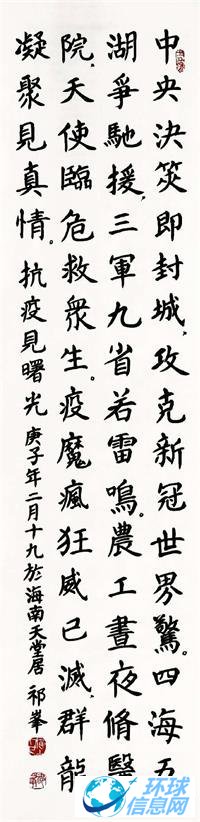 中央決筴即封城，攻克新冠世界驚。四海五
湖爭馳援，三軍九省若雷鳴。農工晝夜脩醫
院，天使臨危救衆生。疫魔瘋狂威已滅，群龍
凝聚見真情。抗疫見曙光 庚子年二月十九於海南天堂居 祁峯
环球
信息网